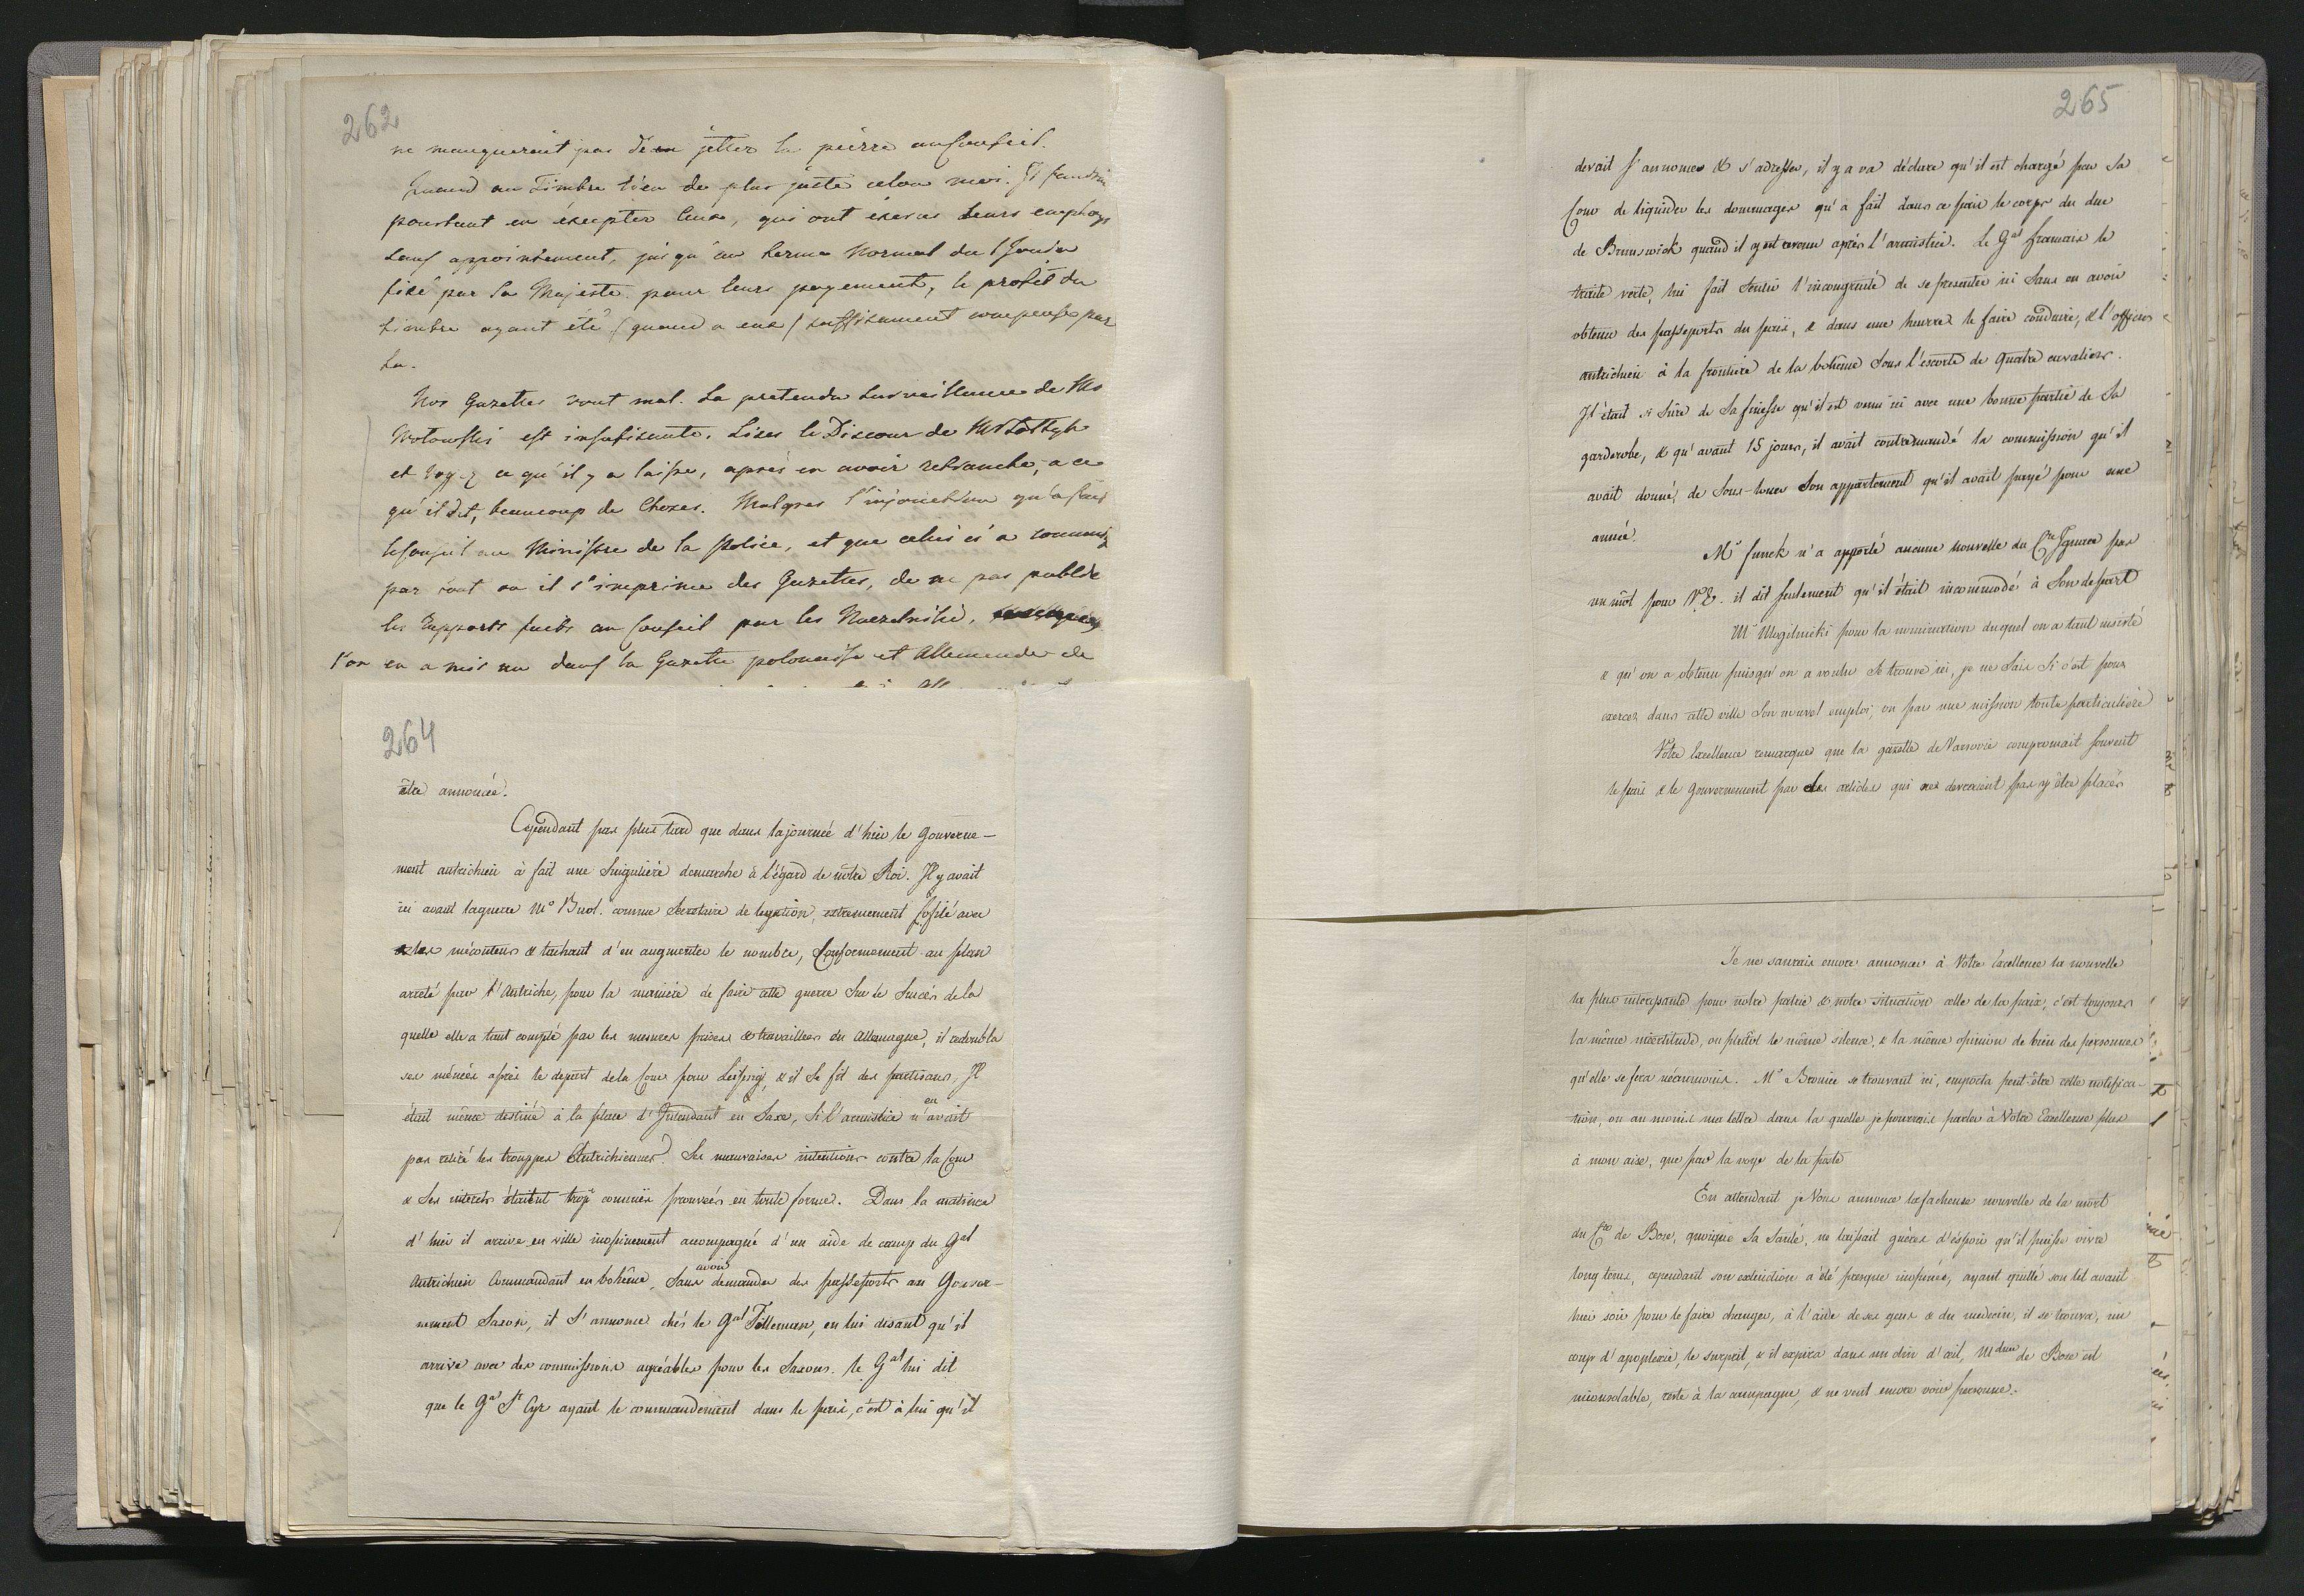 262
ne manqueroit pas d'en jetter la pierre au Conseil.
Quand au Timbre rien de plus juste selon moi. Il faudroit
pourtant en éxcepter ceux, qui ont éxercés leurs employs
sans appointement, jusqu'au terme Normal du 1 Janvier
fixé par Sa Majesté pour leurs payement, le profit du
timbre ayant été (quand a eux) suffisament compensé par
La.
Nos Gazettes vont mal. La pretendue Surveillance de Mr
est insufisante. Lisez le Discour de Mr
et voyez ce qu'il y a laissé, après en avoir retranché, a ce
qu'il dit, beaucoup de Choses. Malgres l'injonction qu'a fait
le Conseil au Ministre de la Police, et que celui ci a communiq
par tout ou il s'imprime des Gazettes, de ne pas publier
les Rapports faits au Conseil par les
l'on en a mis un dans la Gazette polonaise et Allemande de
264
être annoncée.
Cependant pas plus tard que dans la journée d'hier le Gouverne-
ment autrichien à fait une Singulière demarche à l'égard de nôtre Roi. Il y avait
ici avant la guerre Mr Buol. comme Secretaire de legation, extremement faufilé avec
les mécontens & tachant d'en augmenter le nombre, Conformement au plan
arreté par l'Autriche, pour la maniere de faire cette guerre Sur le Succès de la
quelle elle a tant compté par les mesures prises & travaillées en Allemagne, il redoubla
ses ménées après le depart de la Cour pour Leipzig, & il Se fit des partisans, Il
était même destiné à la place d'Intendant en Saxe, Si l'armistice n'en avait
pas retiré les trouppes Autrichiennes. Ses mauvaises intentions contre la Cour
& Ses interets étaient trop connues prouvées en toute forme. Dans la matinée
d'hier il arrive en ville inopinement accompagné d'un aide de camp du Gal
Autrichien Commandant en bohême, Sans avoir demander des passeports au Gouver-
nement Saxon, il S'annonce chés le Gal Tilleman, en lui disant qu'il
arrive avec des commissions agréables pour les Saxons. le Gal lui dit
que le Gal St Cyr ayant le commandement dans le païs, c'est à lui qu'il
265
devait S'annoncer & s'adresser, il y a va déclare qu'il est chargé par Sa
Cour de liquider les dommages qu'a fait dans ce païs le corps du duc
de Brunswick quand il y est revenu après l'armistice. le Gal francais le
traite verte, lui fait Sentir l'incongruité de se presenter ici Sans en avoir
obtenu des passeports du païs, & dans une heure le faire conduire, & l'officier
autrichien à la frontiere de la bohême Sous l'escorte de quatre cavaliers.
Il était si Sûre de Sa finesse qu'il est venu ici avec une bonne partie de Sa
garderobe, & qu'avant 15 jours, il avait contremandé la commission qu'il
avait donné, de Sous-louer Son appartement qu'il avait payé pour une
année.
Mr funck n'a apporté aucune nouvelle du Cte Ignace pas
un môt pour V.E. il dit seulement qu'il était incommodé à Son depart
Mr Mogilnicki pour la nomination duquel on a tant insisté
& qu'on a obtenu puisqu'on a voulu Se trouve ici, je ne Sais Si c'est pour
exercer dans cette ville Son nouvel emploi, ou par une mission toute particulière
Votre Excellence remarquer que la gazette de Varsovie compromait Souvent
le païs & le Gouvernement par des articles qui ne devraient pas y être placés
Je ne saurais encore annoncer à Votre Excellence la nouvelle
la plus interessante pour nôtre patrie & notre situation celle de la paix; c'est toujours
la même incertitude, ou plutôt le même silence, & la même opinion de bien des personnes
qu'elle se fera néanmoins. Mr Bronice se trouvant ici, emporta peut-être cette notifica-
tion, ou au moins ma lettre dans la quelle je pourrais parler à Votre Excellence plus
à mon aise, que par la voye de la poste
En attendant je Vous annonce la facheuse nouvelle de la mort
du Cte de Bose, quoique Sa Santé, ne laissait guères d'éspoir qu'il puisse vivre
long tems, cependant son extinction a été presque inopinée, ayant quitté son lit avant
hier soir pour le faire changer, à l'aide de ses gens & du medecin, il se trouva, un
coup d'apoplexie, le surprit, & il expira dans un clin d'œil, Mdme de Bose est
inconsolable, reste à la campagne, & ne veut encore voir personne.